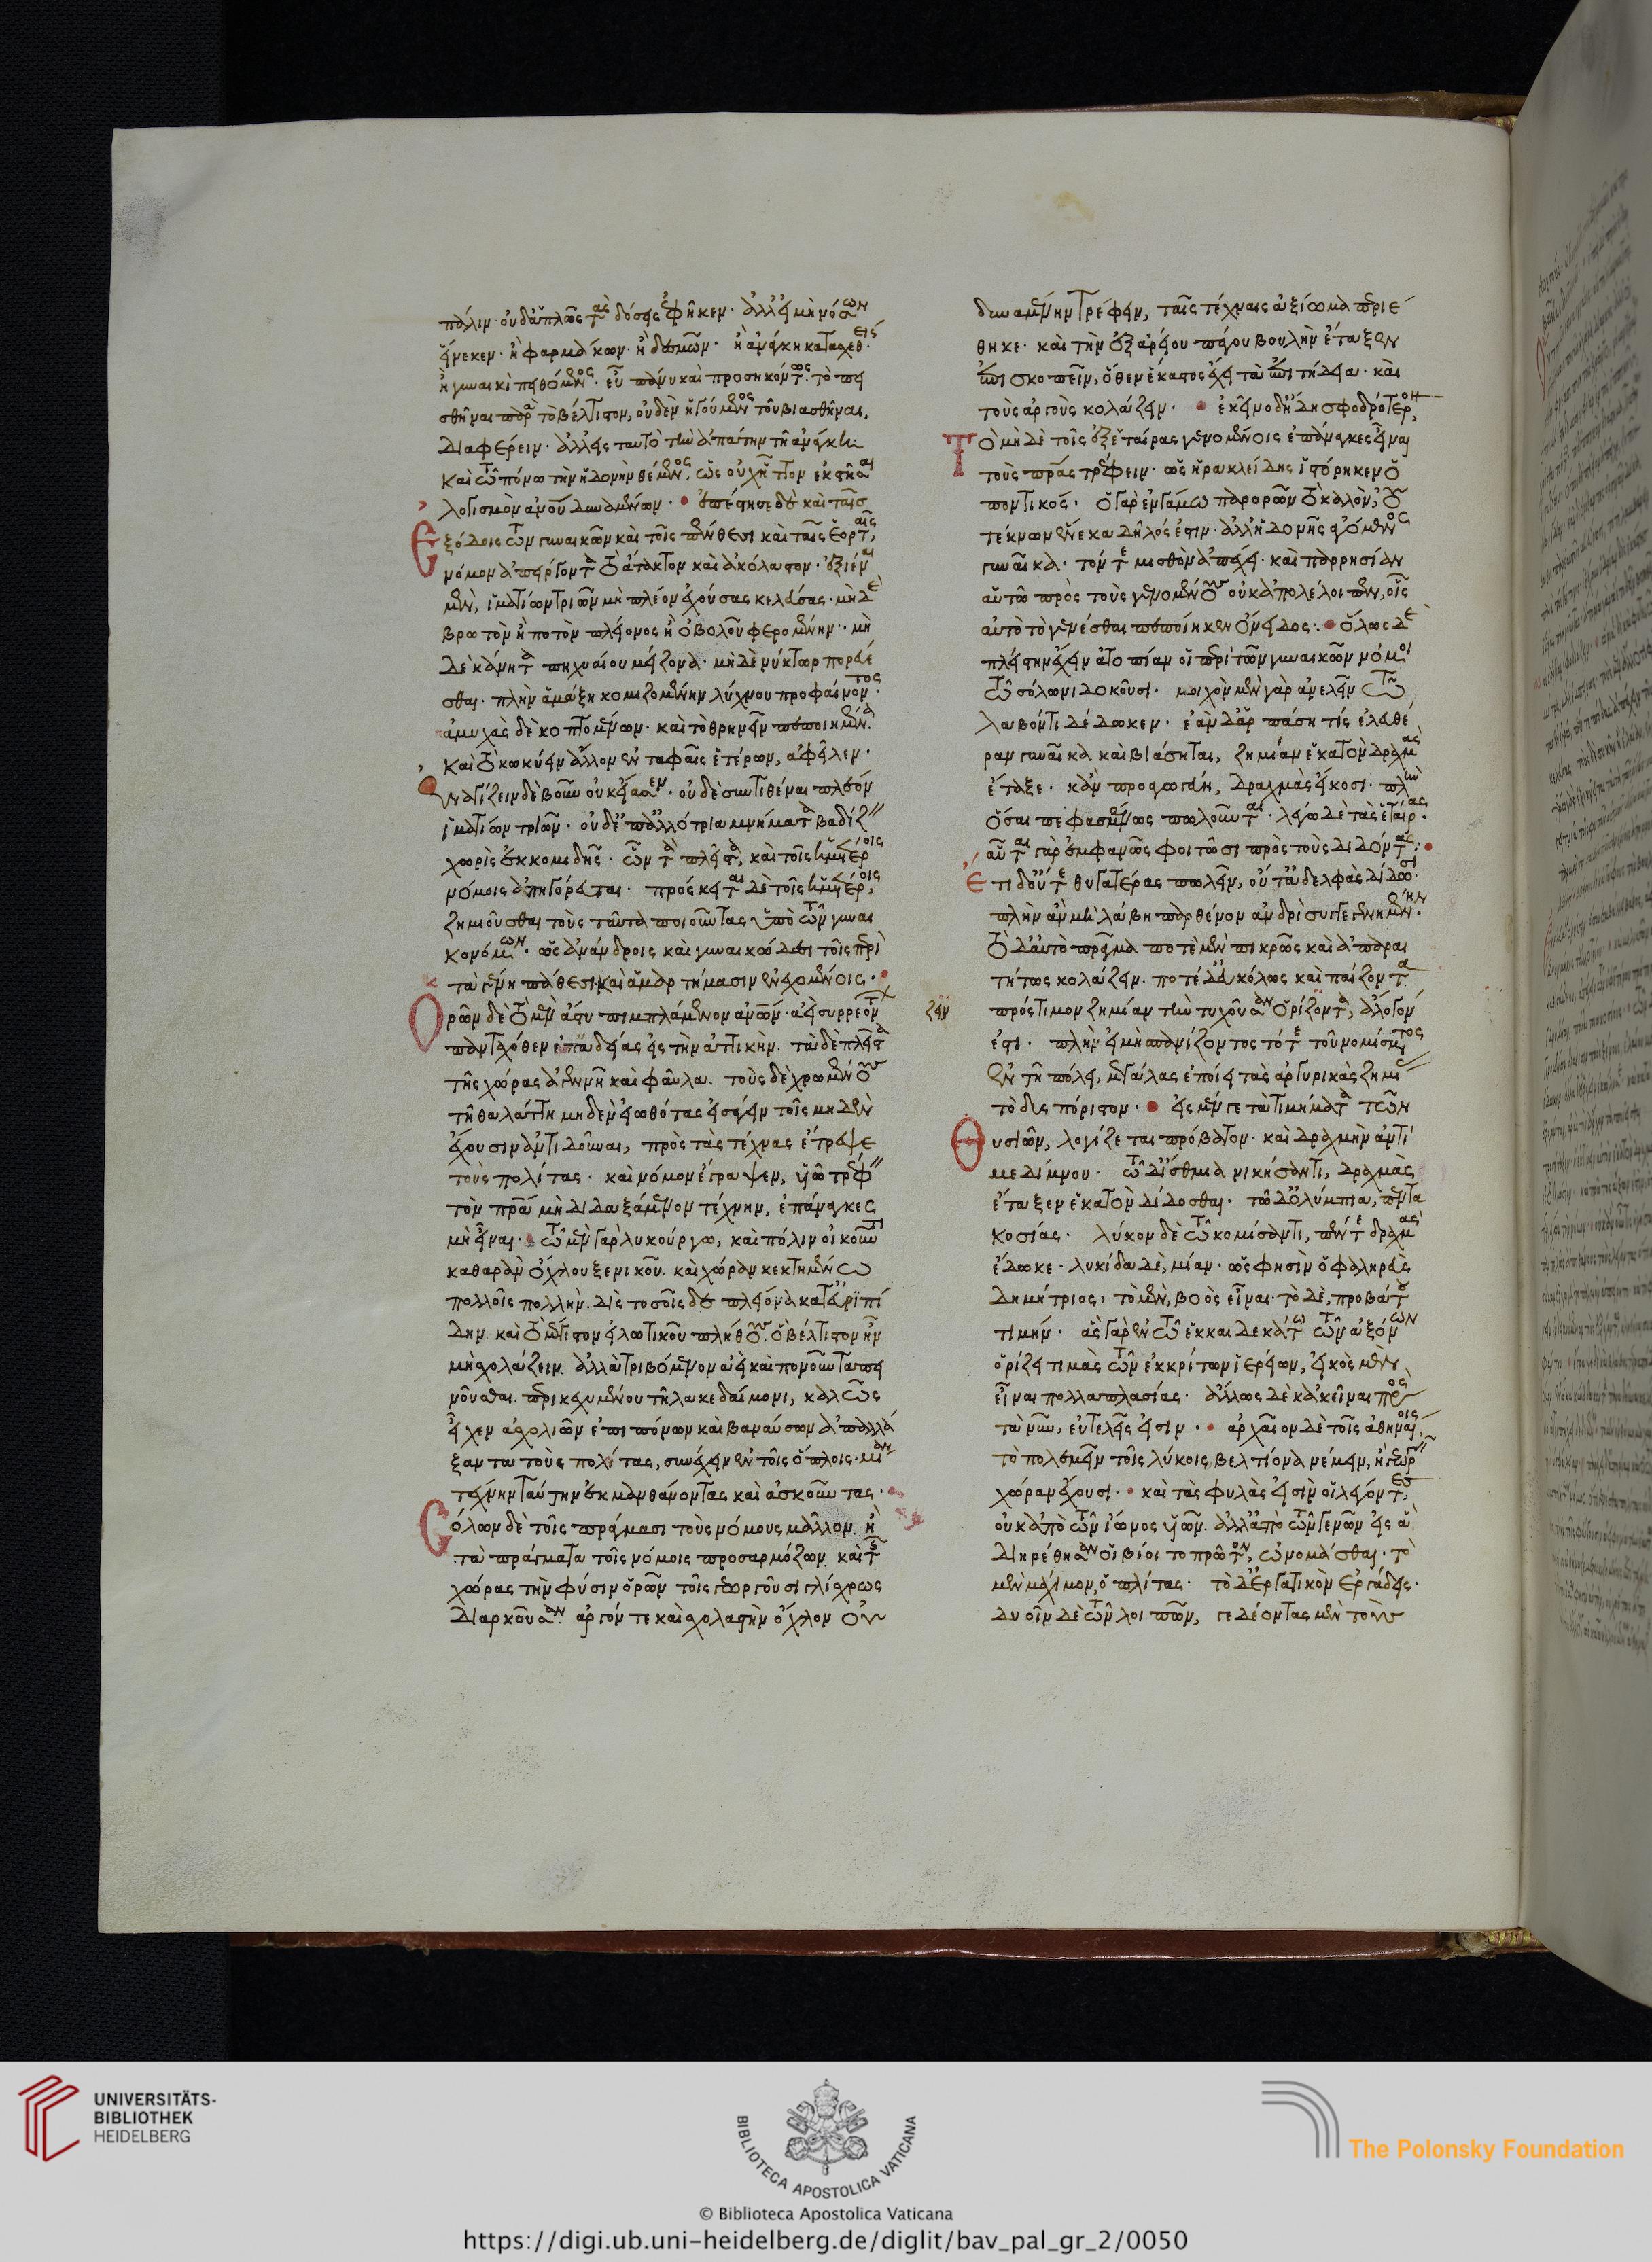 πάλιν· οὐδ' ἁπλῶς τὰς δόσεις ἐφῆκεν· ἀλλ' εἰ μὴ νόσων
εἵνεκεν· ἢ φαρμάκων· ἢ δεσμῶν· ἢ ἀνάγκη κατασχεθεὶς·
ἢ γυναικὶ πειθόμενος· εὖ πάνυ καὶ προσηκόντως· τὸ πει
σθῆναι παρὰ τὸ βέλτιστον, οὐδὲν ἡγούμενος τοῦ βιασθῆναι,
διαφέρειν· ἀλλ' εἰς ταυτὸ τὴν ἀπάτην τῆ ἀνάγκη
καὶ τῶ πόνω τὴν ἡδονὴν θέμενος, ὡς οὐχ ἧττον ἐκστῆσαι
λογισμὸν ἀνοῦ δυναμένων· ἐπέστησε δὲ καὶ ταῖς
ἐξόδοις τῶν γυναικῶν καὶ τοῖς πένθεσι καὶ ταῖς ἑορταῖς,
νόμον ἀπείργοντα τὸ ἄτακτον καὶ ἀκόλαστον· ἐξιέναι
μὲν, ἱματίων τριῶν μὴ πλέον ἐχούσας κελεύσας· μὴ δὲ
βρωτὸν ἢ ποτὸν πλείονος ἢ ὀβολοῦ φερομένην· μὴ
δὲ κάνητα πηχυαίου μείζονα· μὴ δὲ νύκτωρ πορεύε
σθαι· πλὴν ἁμάξη κομιζομένην λύχνου προφαίνοντος·
ἀμυχὰς δὲ κοπτομένων· καὶ τὸ θρηνεῖν πεποιημένα·
καὶ τὸ κωκύειν ἄλλον ἐν ταφαῖς ἑτέρων, ἀφεῖλεν·
ἐναγίζειν δὲ βοῦν οὐκ εἴασεν· οὐδὲ συντιθέναι πλέον
ἱματίων τριῶν· οὐδ' ἐπ' ἀλλότρια μνήματα βαδίζειν
χωρὶς ἐκκομιδῆς· ὧν τὰ πλεῖστα, καὶ τοῖς ἡμετέροις
νόμοις ἀπηγόρευται· πρόσκειται δὲ τοῖς ἡμετέροις,
ζημιοῦσθαι τοὺς ταῦτα ποιοῦντας ὑπὸ τῶν γυναι
κονόμων· ὡς ἀνάνδροις καὶ γυναικώδεσι τοῖς περὶ
τὰ πένθη πάθεσι καὶ ἁμαρτήμασιν ἐνεχομένοις·
Ὁρῶν δὲ τὸ μὲν ἄστυ πιμπλάμενον ἀνῶν· ἀεὶ συρρεόντων
πανταχόθεν ἐπ' ἀδείας εἰς τὴν ἀττικὴν· τὰ δὲ πλεῖστα
τῆς χώρας ἀγεννῆ καὶ φαῦλα· τοὺς δὲ χρωμένους
τῆ θαλάττη μηδὲν εἰωθότας εἰσάγειν τοῖς μηδὲν
ἔχουσιν ἀντιδοῦναι, πρὸς τὰς τέχνας ἔτρεψε
τοὺς πολίτας· καὶ νόμον ἔγραψεν, υἱῶ τρέφειν
τὸν πρα μὴ διδαξάμενον τέχνην, ἐπάναγκες
μὴ εἶναι· τῶ μὲν γὰρ λυκούργω, καὶ πόλιν οἰκοῦντι
καθαρὰν ὄχλου ξενικοῦ· καὶ χώραν κεκτημένω
πολλοῖς πολλὴν· δὶς τοσοῖς δὲ πλείονα κατ' εὐριπί
δην· καὶ τὸ μέγιστον εἱλωτικοῦ πλήθους· ὃ βέλτιστον ἦν
μὴ σχολάζειν· ἀλλὰ τριβόμενον ἀεὶ καὶ πονοῦν ταπει
νοῦσθαι· περικεχυμένου τῆ λακεδαίμονι, καλῶς
εἶχεν ἀσχολιῶν ἐπιπόνων καὶ βαναύσων ἀπαλλά
ξαντα τοὺς πολίτας, συνέχειν ἐν τοῖς ὅπλοις· μίαν
τέχνην ταύτην ἐκμανθάνοντας καὶ ἀσκοῦντας·
Σόλων δὲ τοῖς πράγμασι τοὺς νόμους μᾶλλον ἢ
τὰ πράγματα τοῖς νόμοις προσαρμόζων· καὶ τῆς
χώρας τὴν φύσιν ὁρῶν τοῖς γεωργοῦσι γλίσχρως
διαρκοῦσαν· ἀργόν τε καὶ σχολαστὴν ὄχλον οὐ
δυναμένην τρέφειν, ταῖς τέχναις ἀξίωμα περιέ
θηκε· καὶ τὴν ἐξ ἀρείου πάγου βουλὴν ἔταξεν
ἐπισκοπεῖν, ὅθεν ἕκαστος ἔχει τὰ ἐπιτήδεια· καὶ
τοὺς ἀργοὺς κολάζειν· ἐκεῖνο δ' ἤδη σφοδρότερον,
Τὸ μὴ δὲ τοῖς ἐξ ἑταίρας γενομένοις ἐπάναγκες εἶναι
τοὺς πρας τρέφειν· ὡς ἡρακλείδης ἱστόρηκεν ὁ
ποντικός· ὁ γὰρ ἐν γάμω παρορῶν τὸ καλὸν, οὐ
τέκνων ἕνεκα δῆλός ἐστιν· ἀλλ' ἡδονῆς ἀγόμενος
γυναῖκα· τόν τε μισθὸν ἀπέχει· καὶ παρρησίαν
αὑτῶ πρὸς τοὺς γενομένους οὐκ ἀπολέλοιπεν, οἷς
αὐτὸ τὸ γενέσθαι πεποίηκεν ὄνειδος· ὅλως δὲ
πλείστην ἔχειν ἀτοπίαν οἱ περὶ τῶν γυναικῶν νόμοι
τῶ σόλωνι δοκοῦσι· μοιχὸν μὲν γὰρ ἀνελεῖν τῶ
λαβόντι δέδωκεν· ἐὰν δ' ἁρπάση τίς ἐλευθέ
ραν γυναῖκα καὶ βιάσηται, ζημίαν ἑκατὸν δραχμὰς
ἔταξε· κἂν προαγωγεύη, δραχμὰς εἴκοσι· πλὴν
ὅσαι πεφασμένως πωλοῦνται· λέγων δὲ τὰς ἑταίρας·
αὗται γὰρ ἐμφανῶς φοιτῶσι πρὸς τοὺς διδόντας·
Ἔτι δ' οὔτε θυγατέρας πωλεῖν, οὔτ' ἀδελφὰς δίδωσι·
πλὴν ἂν μὴ λάβη παρθένον ἀνδρὶ συγγεγενημένην·
τὸ δ' αὐτὸ πρᾶγμα ποτὲ μὲν πικρῶς καὶ ἀπαραι
τήτως κολάζειν· ποτὲ δ' εὐκόλως καὶ παίζοντα
πρόστιμον ζημίαν τὴν τυχοῦσαν ὁρίζοντα, ἄλογόν
ἐστι· πλὴν εἰ μὴ σπανίζοντος τότε τοῦ νομίσματος
ἐν τῆ πόλει, μεγάλας ἐποίει τὰς ἀργυρικὰς ζημίας
τὸ δυσπόριστον· εἰς μέν γε τὰ τιμήματα τῶν
Θυσιῶν, λογίζεται πρόβατον· καὶ δραχμὴν ἀντὶ
μεδίμνου· τῶ δ' ἴσθμια νικήσαντι, δραχμὰς
ἔταξεν ἑκατὸν δίδοσθαι· τῶ δ' ὀλύμπια, πεντα
κοσίας· λύκον δὲ τῶ κομίσαντι, πέντε δραχμὰς
ἔδωκε· λυκιδέα δὲ, μίαν· ὥς φησὶν ὁ φαληρεὺς
δημήτριος· τὸ μὲν, βοὸς εἶναι· τὸ δὲ, προβάτου
τιμήν· ἃς γὰρ ἐν τῶ ἑκκαιδεκάτω τῶν ἀξόνων
ὁρίζει τιμὰς τῶν ἐκκρίτων ἱερείων, εἰκὸς μὲν
εἶναι πολλαπλασίας· ἄλλως δὲ κἀκεῖναι πρὸς
τὰ νῦν, εὐτελεῖς εἰσιν· ἀρχαῖον δὲ τοῖς ἀθηναίοις
τὸ πολεμεῖν τοῖς λύκοις, βελτίονα νέμειν, ἢ γεωργεῖν
χώραν ἔχουσι· καὶ τὰς φυλὰς εἰσὶν οἱ λέγοντες,
οὐκ ἀπὸ τῶν ἴωνος υἱῶν· ἀλλ' ἀπὸ τῶν γενῶν εἰς ἃ
διηρέθησαν οἱ βίοι τοπρῶτον, ὠνομάσθαι· τὸ
μὲν μάχιμον, ὁπλίτας· τὸ δ' ἐργατικὸν ἐργάδεις·
δυοῖν δὲ τῶν λοιπῶν, γεδέοντας μὲν τοὺς
ζειν
UNIVERSITÄTS-
BIBLIOTHEK
HEIDELBERG
BIBLIOTECA APOSTOLICA VATICANA
The Polonsky Foundation
© Biblioteca Apostolica Vaticana
https://digi.ub.uni-heidelberg.de/diglit/bav_pal_gr_2/0050